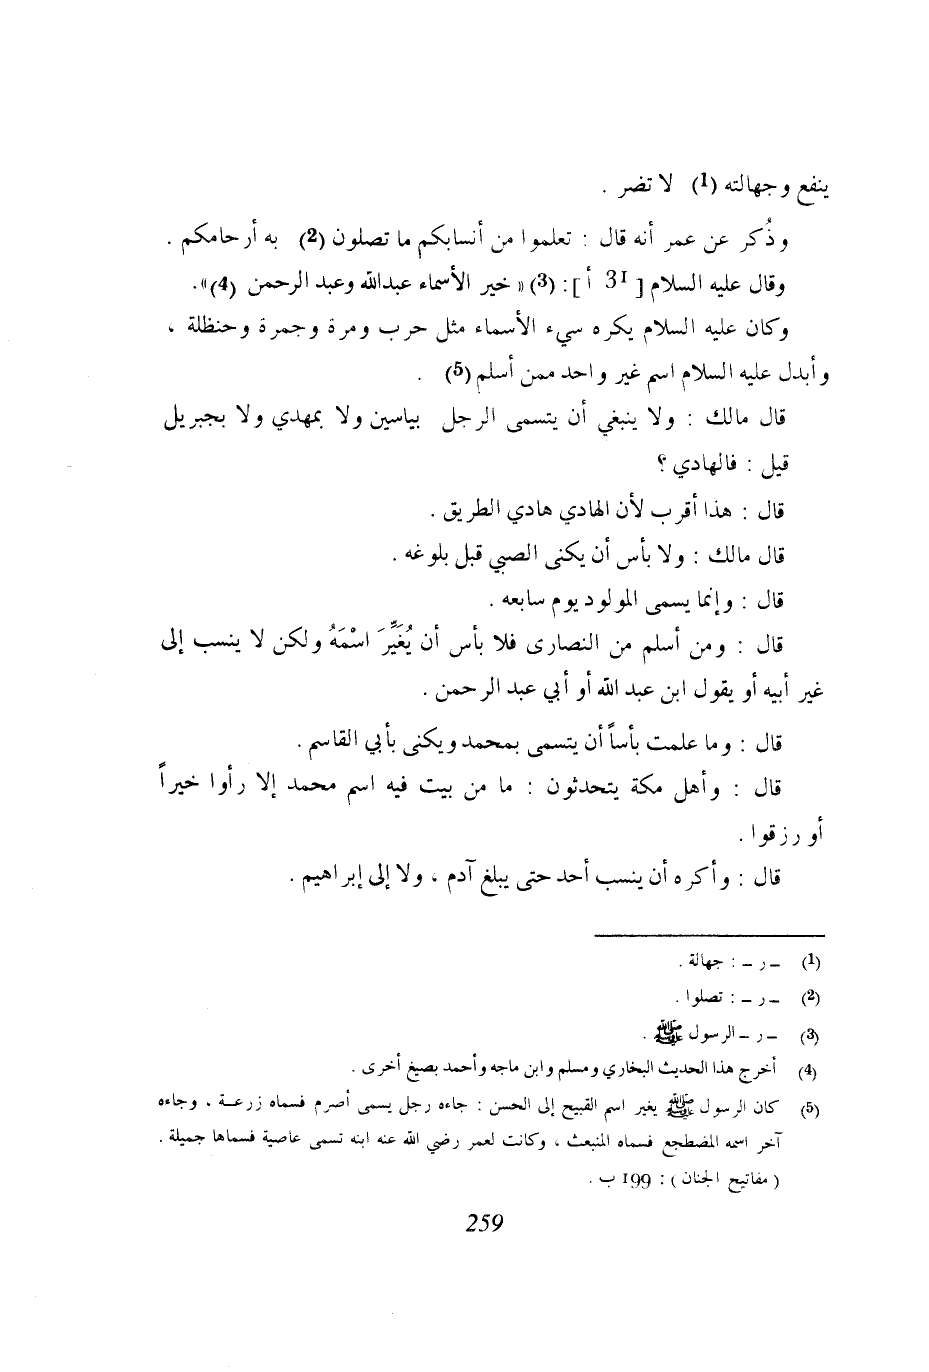 ينفع وجهالته (1) لا تضر .
وذُكر عن عمر أنه قال : تعلموا من أنسابكم ما تصلون (2) به أرحامكم .
وقال عليه السلام [ 31 أ ]: (3) « خير الأسماء عبدالله وعبد الرحمن (4)».
وكان عليه السلام يكره سيء الأسماء مثل حرب ومرة وجمرة وحنظلة ،
وأبدل عليه السلام اسم غير واحد ممن أسلم (5) .
قال مالك : ولا ينبغي أن يتسمى الرجل بياسين ولا بمهدي ولا بجبريل
قيل : فالهادي ؟
قال : هذا أقرب لأن الهادي هادي الطريق .
قال مالك : ولا بأس أن يكنى الصبي قبل بلوغه .
قال : وإنما يسمى المولود يوم سابعه .
قال : ومن أسلم من النصارى فلا بأس أن يُغَيِّرَ اسْمَهُ ولكن لا ينسب إلى
غير أبيه أو يقول ابن عبد الله أو أبي عبد الرحمن .
قال : وما علمت بأساً أن يتسمى بمحمد ويكنى بأبي القاسم .
قال : وأهل مكة يتحدثون : ما من بيت فيه اسم محمد إلا رأوا خيراً
أو رزقوا .
قال : وأكره أن ينسب أحد حتى يبلغ آدم ، ولا إلى إبراهيم .
(1) ـ ر ـ : جهالة .
(2) ـ ر ـ : تصلوا .
(3) ـ ر ـ الرسول ﷺ .
(4) أخرج هذا الحديث البخاري ومسلم وابن ماجه وأحمد بصيغ أخرى .
(5) كان الرسول ﷺ يغير اسم القبيح إلى الحسن : جاءه رجل يسمى أصرم فسماه زرعة ، وجاءه
آخر اسمه المضطجع فسماه المنبعث ، وكانت لعمر رضي الله عنه ابنه تسمى عاصية فسماها جميلة .
( مفاتيح الجنان ) : 199 ب .
259